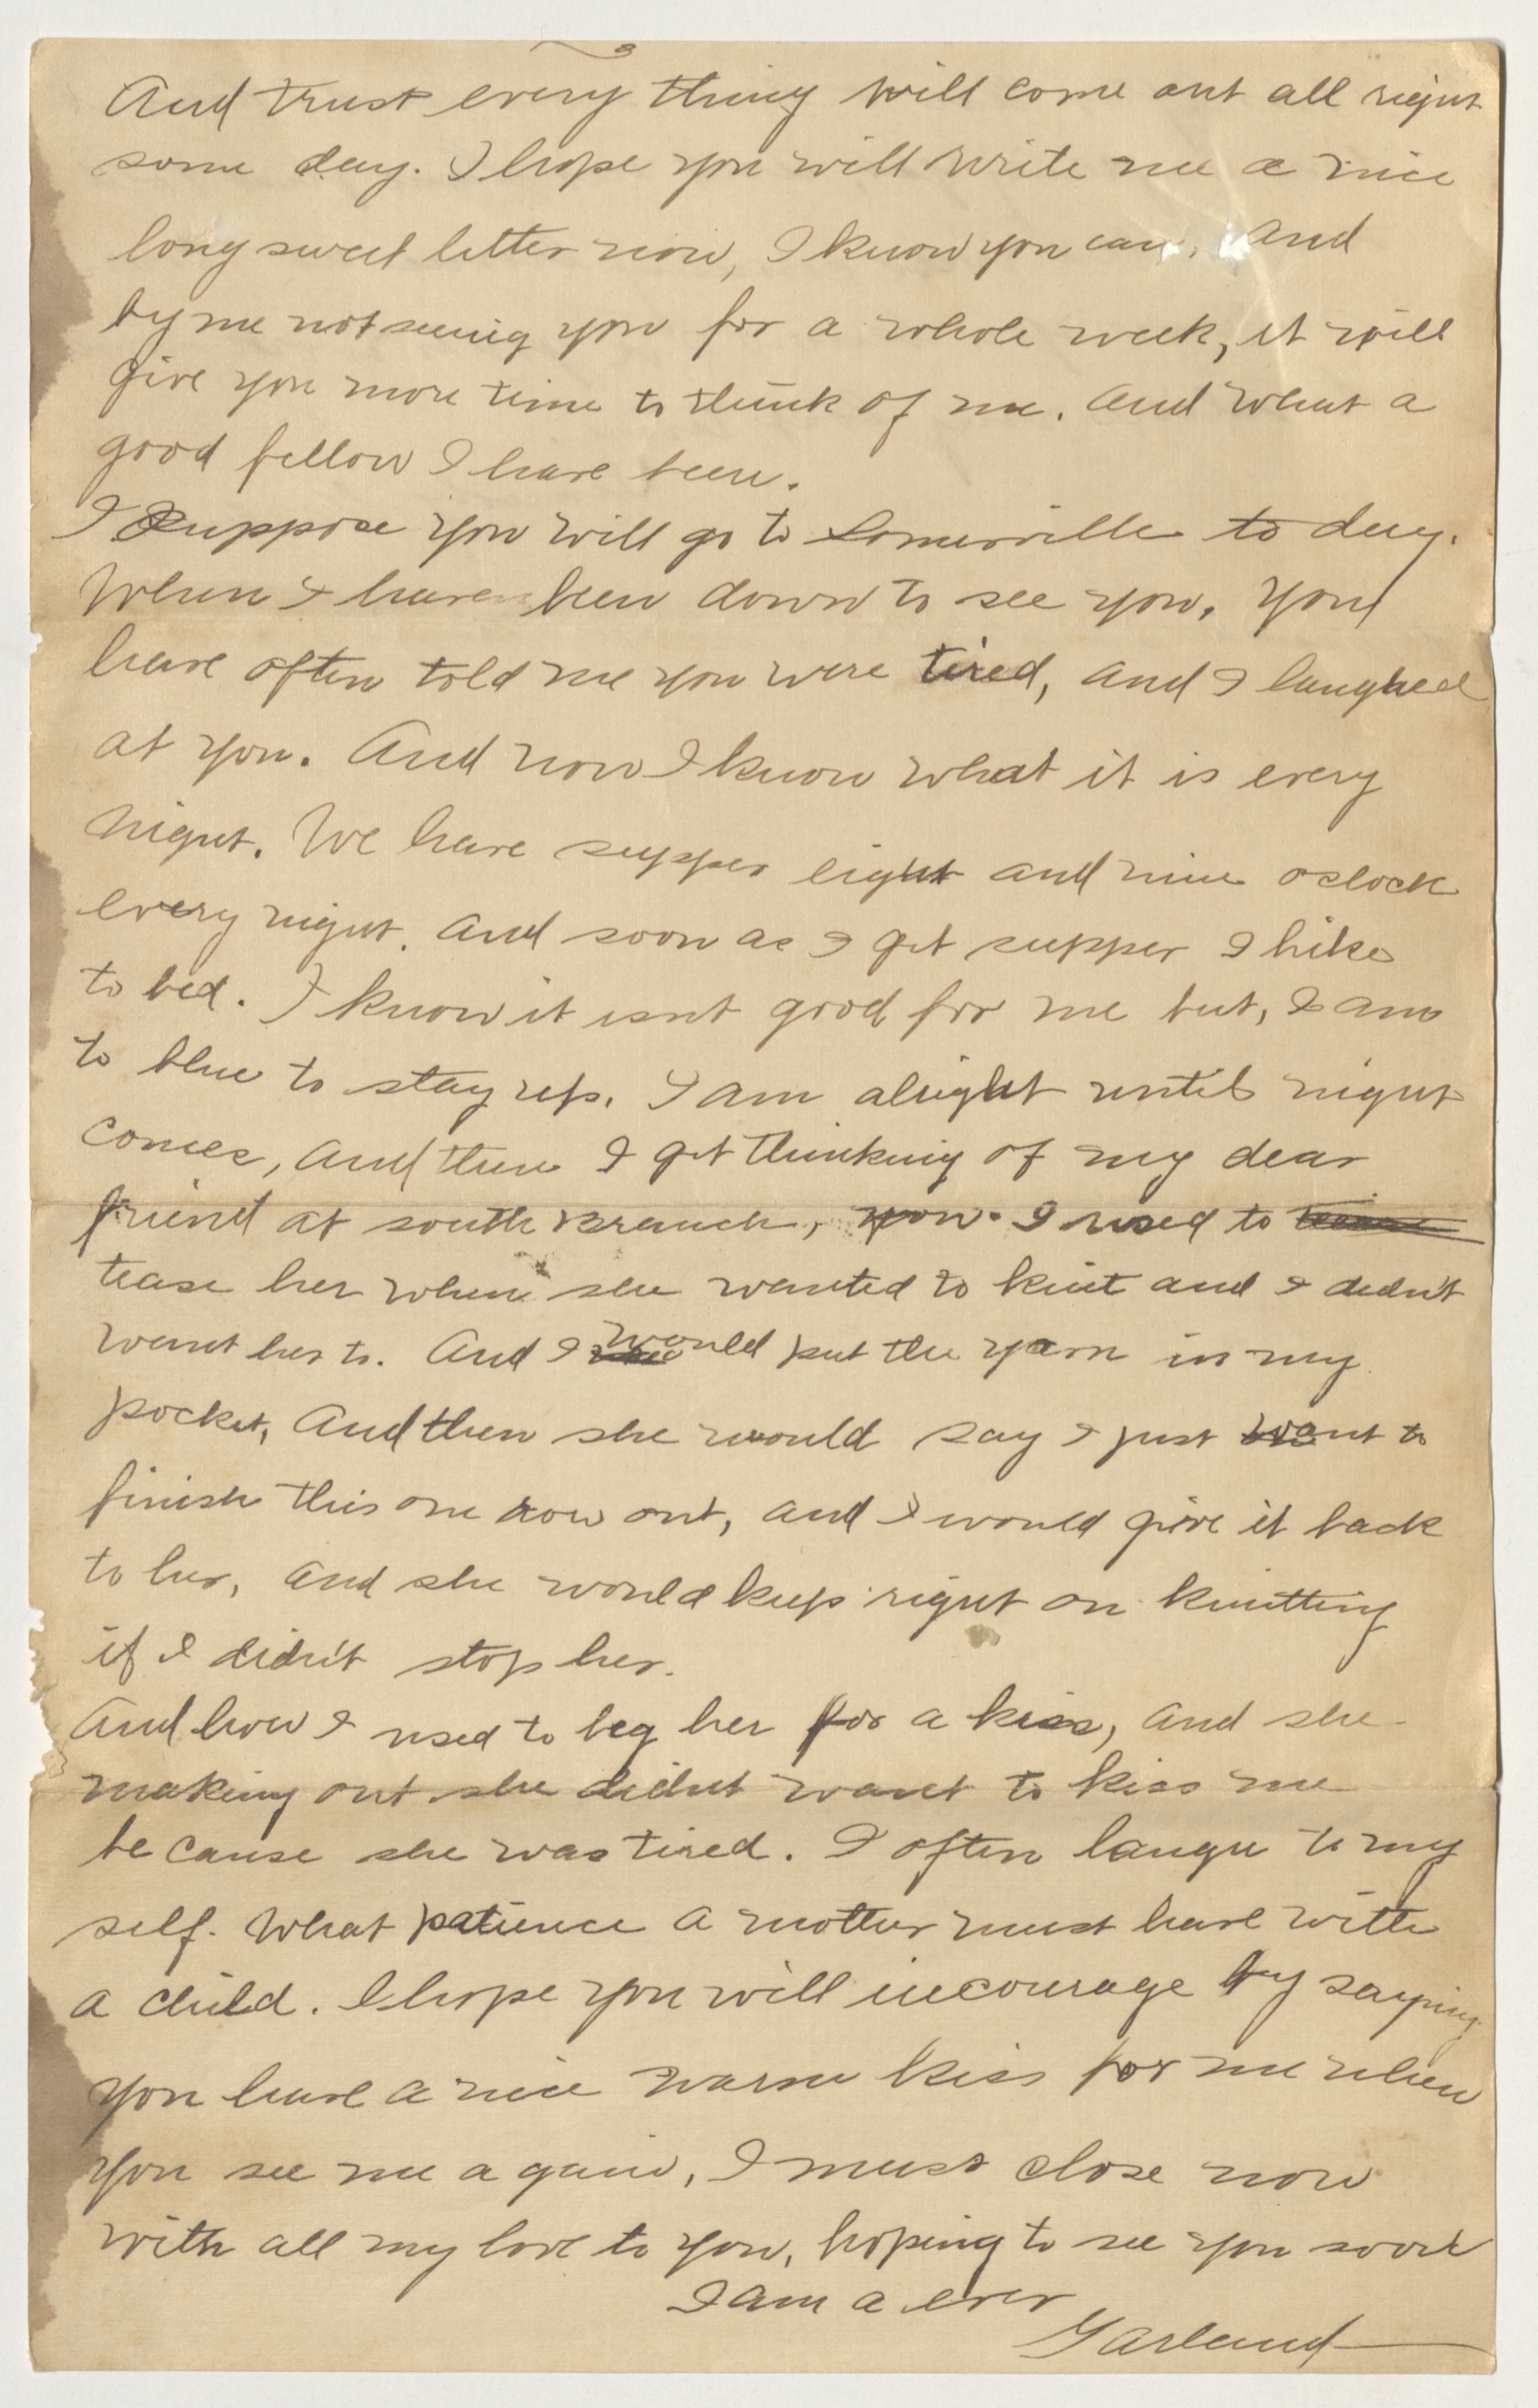 And trust every thing will come out all right
some day. I hope you will write me a nice
long sweet letter now, I know you can, And
by me not seeing you for a whole week, it will
give you more time to think of me. And what a
good fellow I have been.
I Suppose you will go to Somerville to day.
When I have been down to see you, you
have often told me you were tired, and I laughed
at you. And now I know what it is every
night. We have supper eight and nine oclock
every night. And soon as I get supper I hike
to bed. I know it isnt good for me but, I am
to blue to stay up. I am alright until night
comes, And then I get thinking of my dear
friend at south Branch, now. I used to
tease her when she wanted to knit and I didn't
want her to. And I would put the yarn in my
pocket, And then she would say I just want to
finish this one row out, and I would give it back
to her, and she would keep right on knitting
if I didn't stop her.
And how I used to beg her for a kiss, and she
making out she didnt want to kiss me
be cause she was tired. I often laugh to my
self. What patience a mother must have with
a child. I hope you will incourage by saying
you have a nice warm kiss for me when
you see me again, I must close now
with all my love to you, hoping to see you soon
I am a ever
Garland